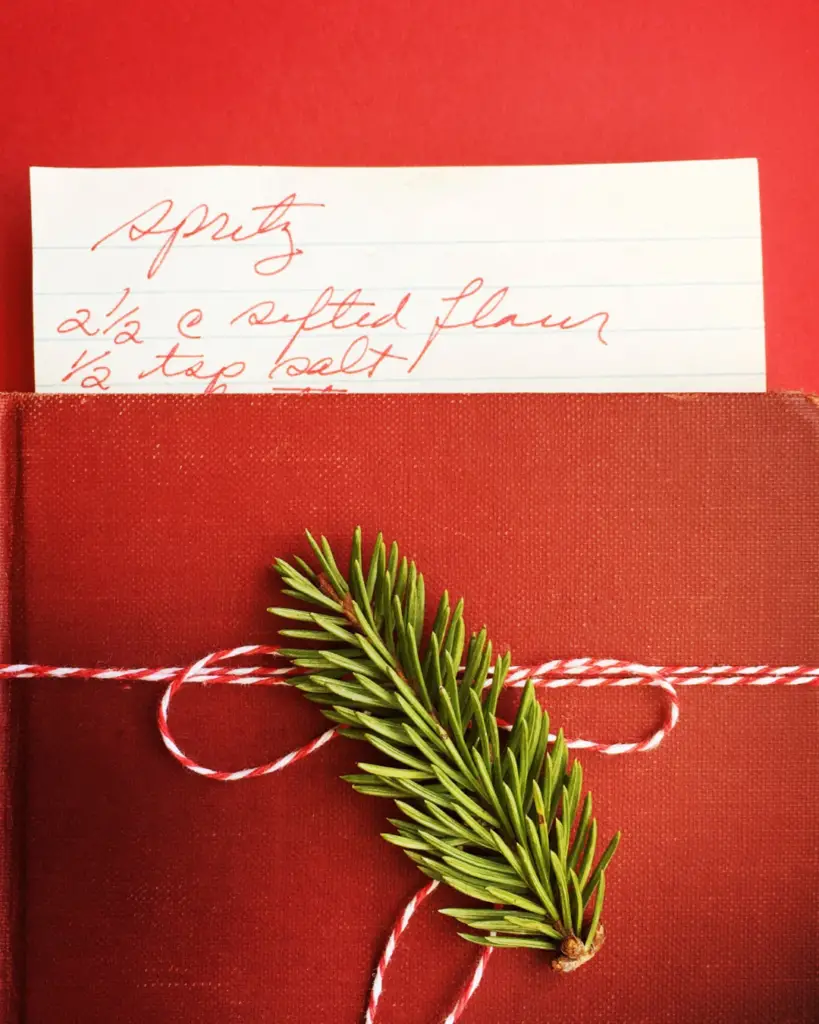 Spritz
2 1/2 c sifted flour
1/2 tsp salt